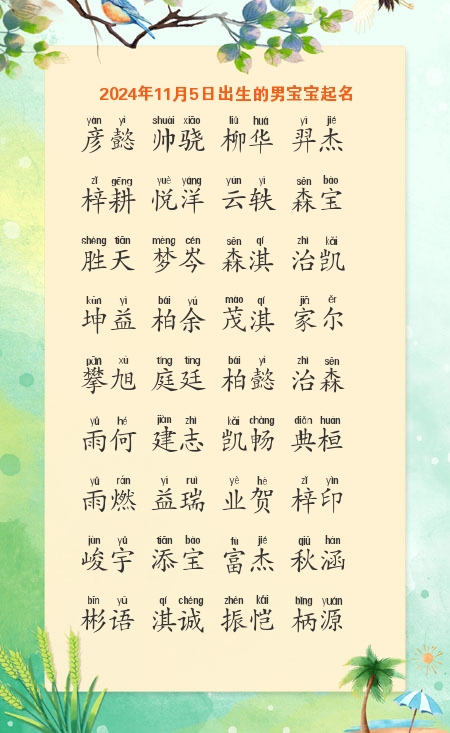 2024年11月5日出生的男宝宝起名
yàn yì shuài xiāo liǔ huá yì jié
彦懿 帅骁 柳华 羿杰
zǐ gēng yuè yáng yún yì sēn bǎo
梓耕 悦洋 云轶 森宝
shèng tiān mèng cén sēn qí zhì kǎi
胜天 梦岑 森淇 治凯
kūn yì bǎi yú mào qí jiā ěr
坤益 柏余 茂淇 家尔
pān xù tíng tíng bǎi yì zhì sēn
攀旭 庭廷 柏懿 治森
yǔ hé jiàn zhì kǎi chàng diǎn huán
雨何 建志 凯畅 典桓
yǔ rán yì ruì yè hè zǐ yìn
雨燃 益瑞 业贺 梓印
jùn yǔ tiān bǎo fù jié qiū hán
峻宇 添宝 富杰 秋涵
bīn yǔ qí chéng zhèn kǎi bǐng yuán
彬语 淇诚 振恺 柄源